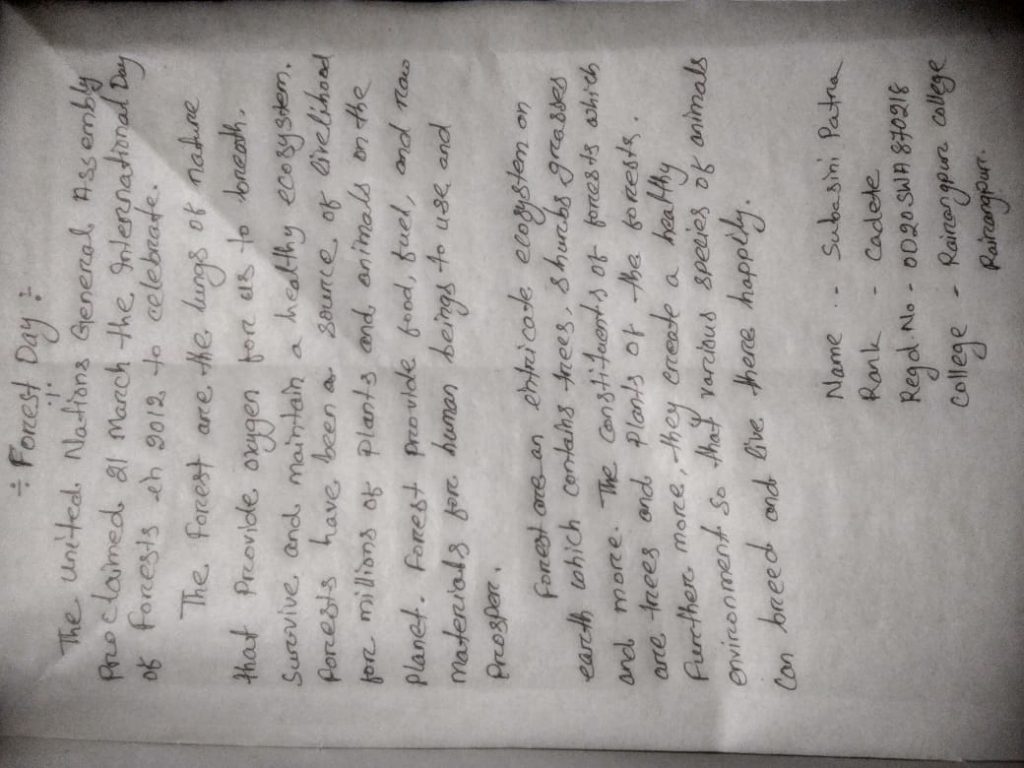 ÷ Forest Day ÷
The united Nations General Assembly
proclaimed 21 March the International Day
of Forests in 2012 to celebrate.
The forest are the lungs of nature
that Provide oxygen for us to breath.
Survive and maintain a healthy ecosystem.
Forests have been a source of livelihood
for millions of plants and animals on the
planet. Forest Provide food, fuel, and raw
materials for human beings to use and
prosper.
Forest are an intricate ecosystem on
earth which contains trees, shurbs grasses
and more. The Constituents of forests which
are trees and plants of the forests.
Further more, they create a healthy
environment so that various species of animals
can breed and live there happily.
Name :- Subasini Patra
Rank - Cadete
Regd. No - OD20SWA870218
College - Rairangpur college
Rairangpur.